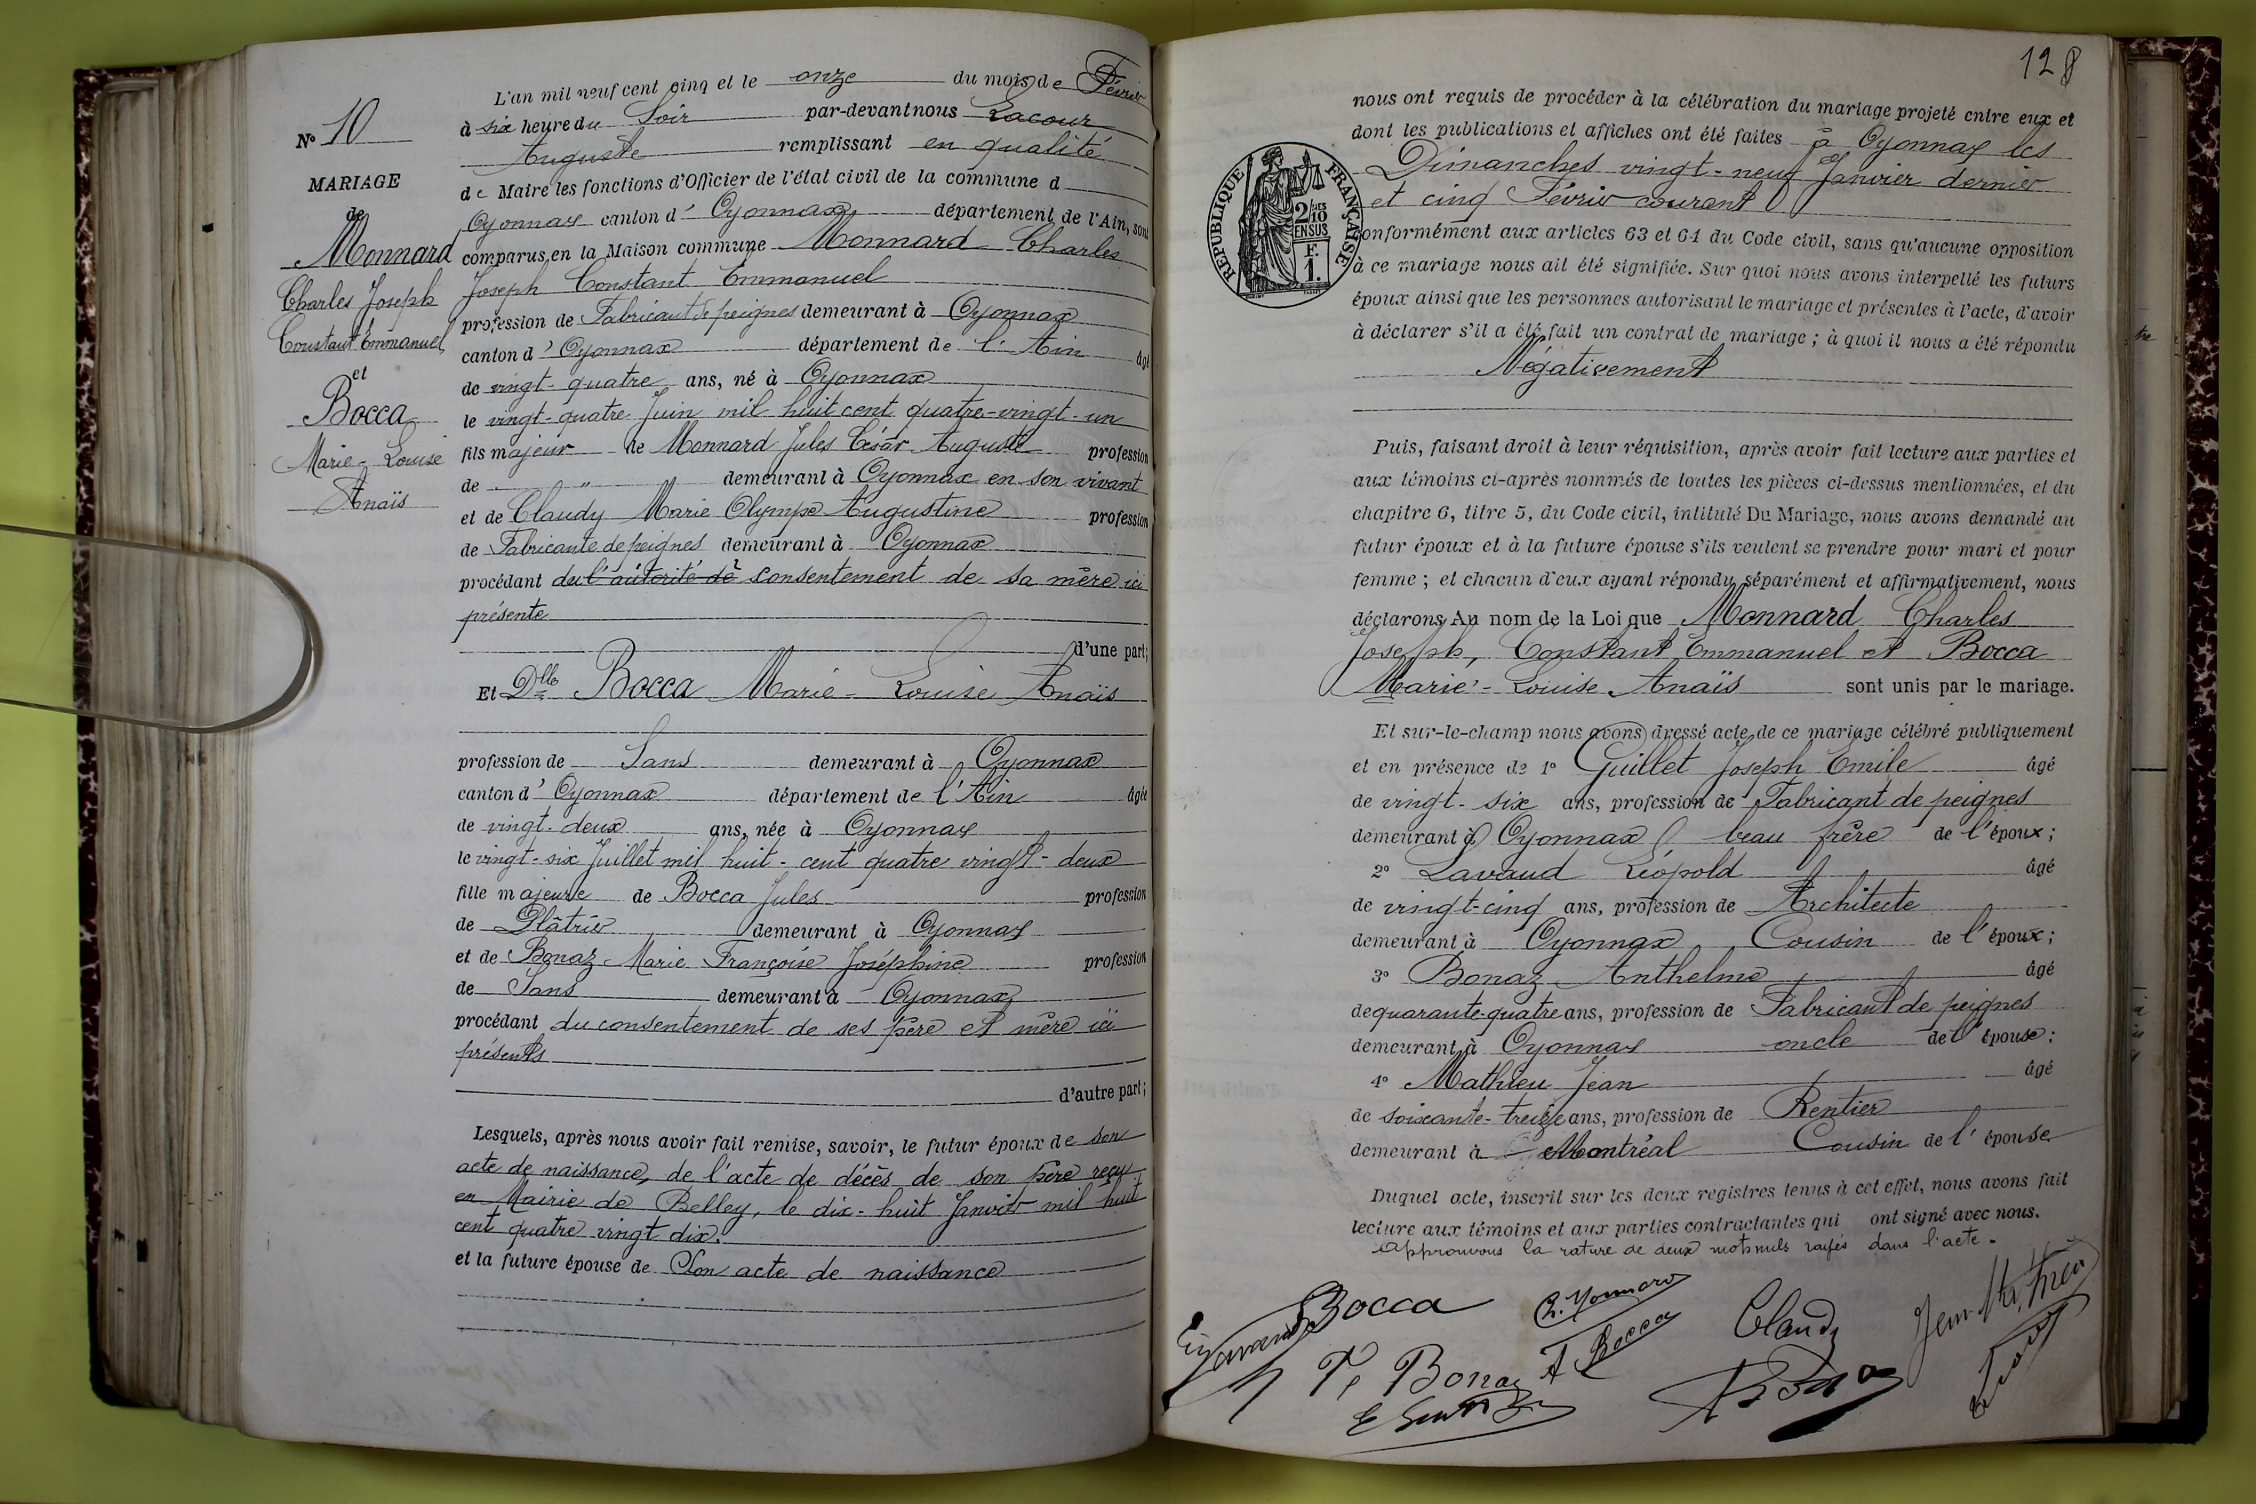 N° 10
MARIAGE
de
Monnard
Charles Joseph
Constant Emmanuel
et
Bocca
Marie-Louise
Anaïs
L'an mil neuf cent cinq et le onze du mois de Février
à six heure du Soir par-devant nous Lacour
Auguste remplissant en qualité
de Maire les fonctions d'Officier de l'état civil de la commune d
Oyonnax canton d' Oyonnax département de l'Ain, sont
comparus en la Maison commune Monnard Charles
Joseph Constant Emmanuel
profession de Fabricant de peignes demeurant à Oyonnax
canton d' Oyonnax département de l'Ain âgé
de vingt-quatre ans, né à Oyonnax
le vingt-quatre Juin mil huit cent quatre-vingt-un
fils majeur de Monnard Jules César Auguste profession
de " demeurant à Oyonnax en son vivant
et de Claudy Marie Olympe Augustine profession
de Fabricante de peignes demeurant à Oyonnax
procédant du l'autorité de consentement de sa mère ici
présente
d'une part;
Et Dlle Bocca Marie-Louise Anaïs
profession de Sans demeurant à Oyonnax
canton d' Oyonnax département de l'Ain âgée
de vingt-deux ans, née à Oyonnax
le vingt-six Juillet mil huit-cent quatre vingt-deux
fille majeure de Bocca Jules profession
de Plâtrier demeurant à Oyonnax
et de Bonaz Marie Françoise Joséphine profession
de Sans demeurant à Oyonnax
procédant du consentement de ses père et mère ici
présents
d'autre part;
Lesquels, après nous avoir fait remise, savoir, le futur époux de son
acte de naissance, de l'acte de décès de son père reçu
en Mairie de Belley, le dix-huit Janvier mil huit
cent quatre vingt dix.
et la future épouse de Son acte de naissance
128
nous ont requis de procéder à la célébration du mariage projeté entre eux et
dont les publications et affiches ont été faites à Oyonnax les
Dimanches vingt-neuf Janvier dernier
et cinq Février courant
RÉPUBLIQUE FRANÇAISE
2/10 ES
EN SUS
F.
1.
conformément aux articles 63 et 64 du Code civil, sans qu'aucune opposition
à ce mariage nous ait été signifiée. Sur quoi nous avons interpellé les futurs
époux ainsi que les personnes autorisant le mariage et présentes à l'acte, d'avoir
à déclarer s'il a été fait un contrat de mariage; à quoi il nous a été répondu
Négativement
Puis, faisant droit à leur réquisition, après avoir fait lecture aux parties et
aux témoins ci-après nommés de toutes les pièces ci-dessus mentionnées, et du
chapitre 6, titre 5, du Code civil, intitulé Du Mariage, nous avons demandé au
futur époux et à la future épouse s'ils veulent se prendre pour mari et pour
femme; et chacun d'eux ayant répondu séparément et affirmativement, nous
déclarons Au nom de la Loi que Monnard Charles
Joseph, Constant Emmanuel et Bocca
Marie-Louise Anaïs sont unis par le mariage.
Et sur-le-champ nous avons dressé acte de ce mariage célébré publiquement
et en présence de 1° Guillet Joseph Emile âgé
de vingt-six ans, profession de Fabricant de peignes
demeurant à Oyonnax beau frère de l'époux;
2° Lavaud Léopold âgé
de vingt-cinq ans, profession de Architecte
demeurant à Oyonnax Cousin de l'époux;
3° Bonaz Anthelme âgé
de quarante-quatre ans, profession de Fabricant de peignes
demeurant à Oyonnax oncle de l'épouse;
4° Mathieu Jean âgé
de soixante-treize ans, profession de Rentier
demeurant à Montréal Cousin de l'épouse
Duquel acte, inscrit sur les deux registres tenus à cet effet, nous avons fait
lecture aux témoins et aux parties contractantes qui ont signé avec nous.
Approuvons la rature de deux mots nuls rayés dans l'acte.
Bocca Ch. Monnard Claudy Jean Mathieu
Lavaud F. Bonaz A Bocca